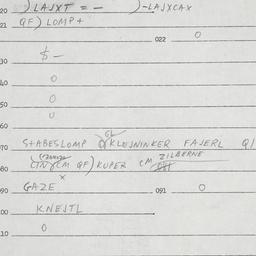 20 ) LAJXT = - )-LAJXCAX
21 QF) LOMP +
022 0
$ -
30
0
40
0
50
0
60
STABESLOMP KLEJNINKER FAJERL Q/
70
ZILBERNE
80 QF) KUPER CM
X
90 GAZE 091 0
00 KNEJTL
10 0